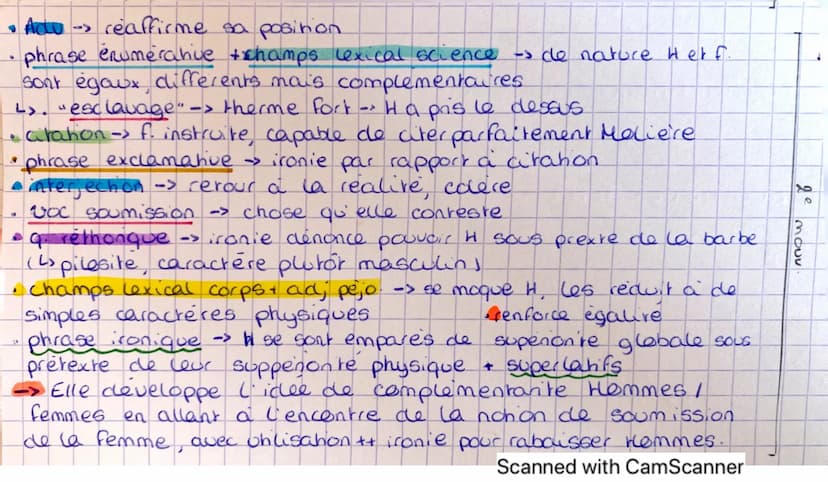 • Adv -> réaffirme sa position
• phrase énumérative + champs lexical science -> de nature H et f.
sont égaux, différents mais complémentaires
↳. "esclavage" -> therme fort -> H a pris le dessus
• citation -> f. instruite, capable de citer parfaitement Molière
• phrase exclamative -> ironie par rapport à citation
• interjection -> retour à la réalité, colère
• voc soumission -> chose qu'elle conteste
• q. réthorique -> ironie dénonce pouvoir H sous prexte de la barbe
(↳ pilosité, caractère plutôt masculin)
• champs lexical corps + adj péjo -> se moque H, les réduit à de
simples caractères physiques renforce égalité
• phrase ironique -> H se sont emparés de supériorité globale sous
prétexte de leur suppériorité physique + superlatifs
-> Elle développe l'idée de complémentarité Hommes /
femmes en allant à l'encontre de la notion de soumission
de la femme, avec utilisation ++ ironie pour rabaisser Hommes.
2e mouv.
Scanned with CamScanner